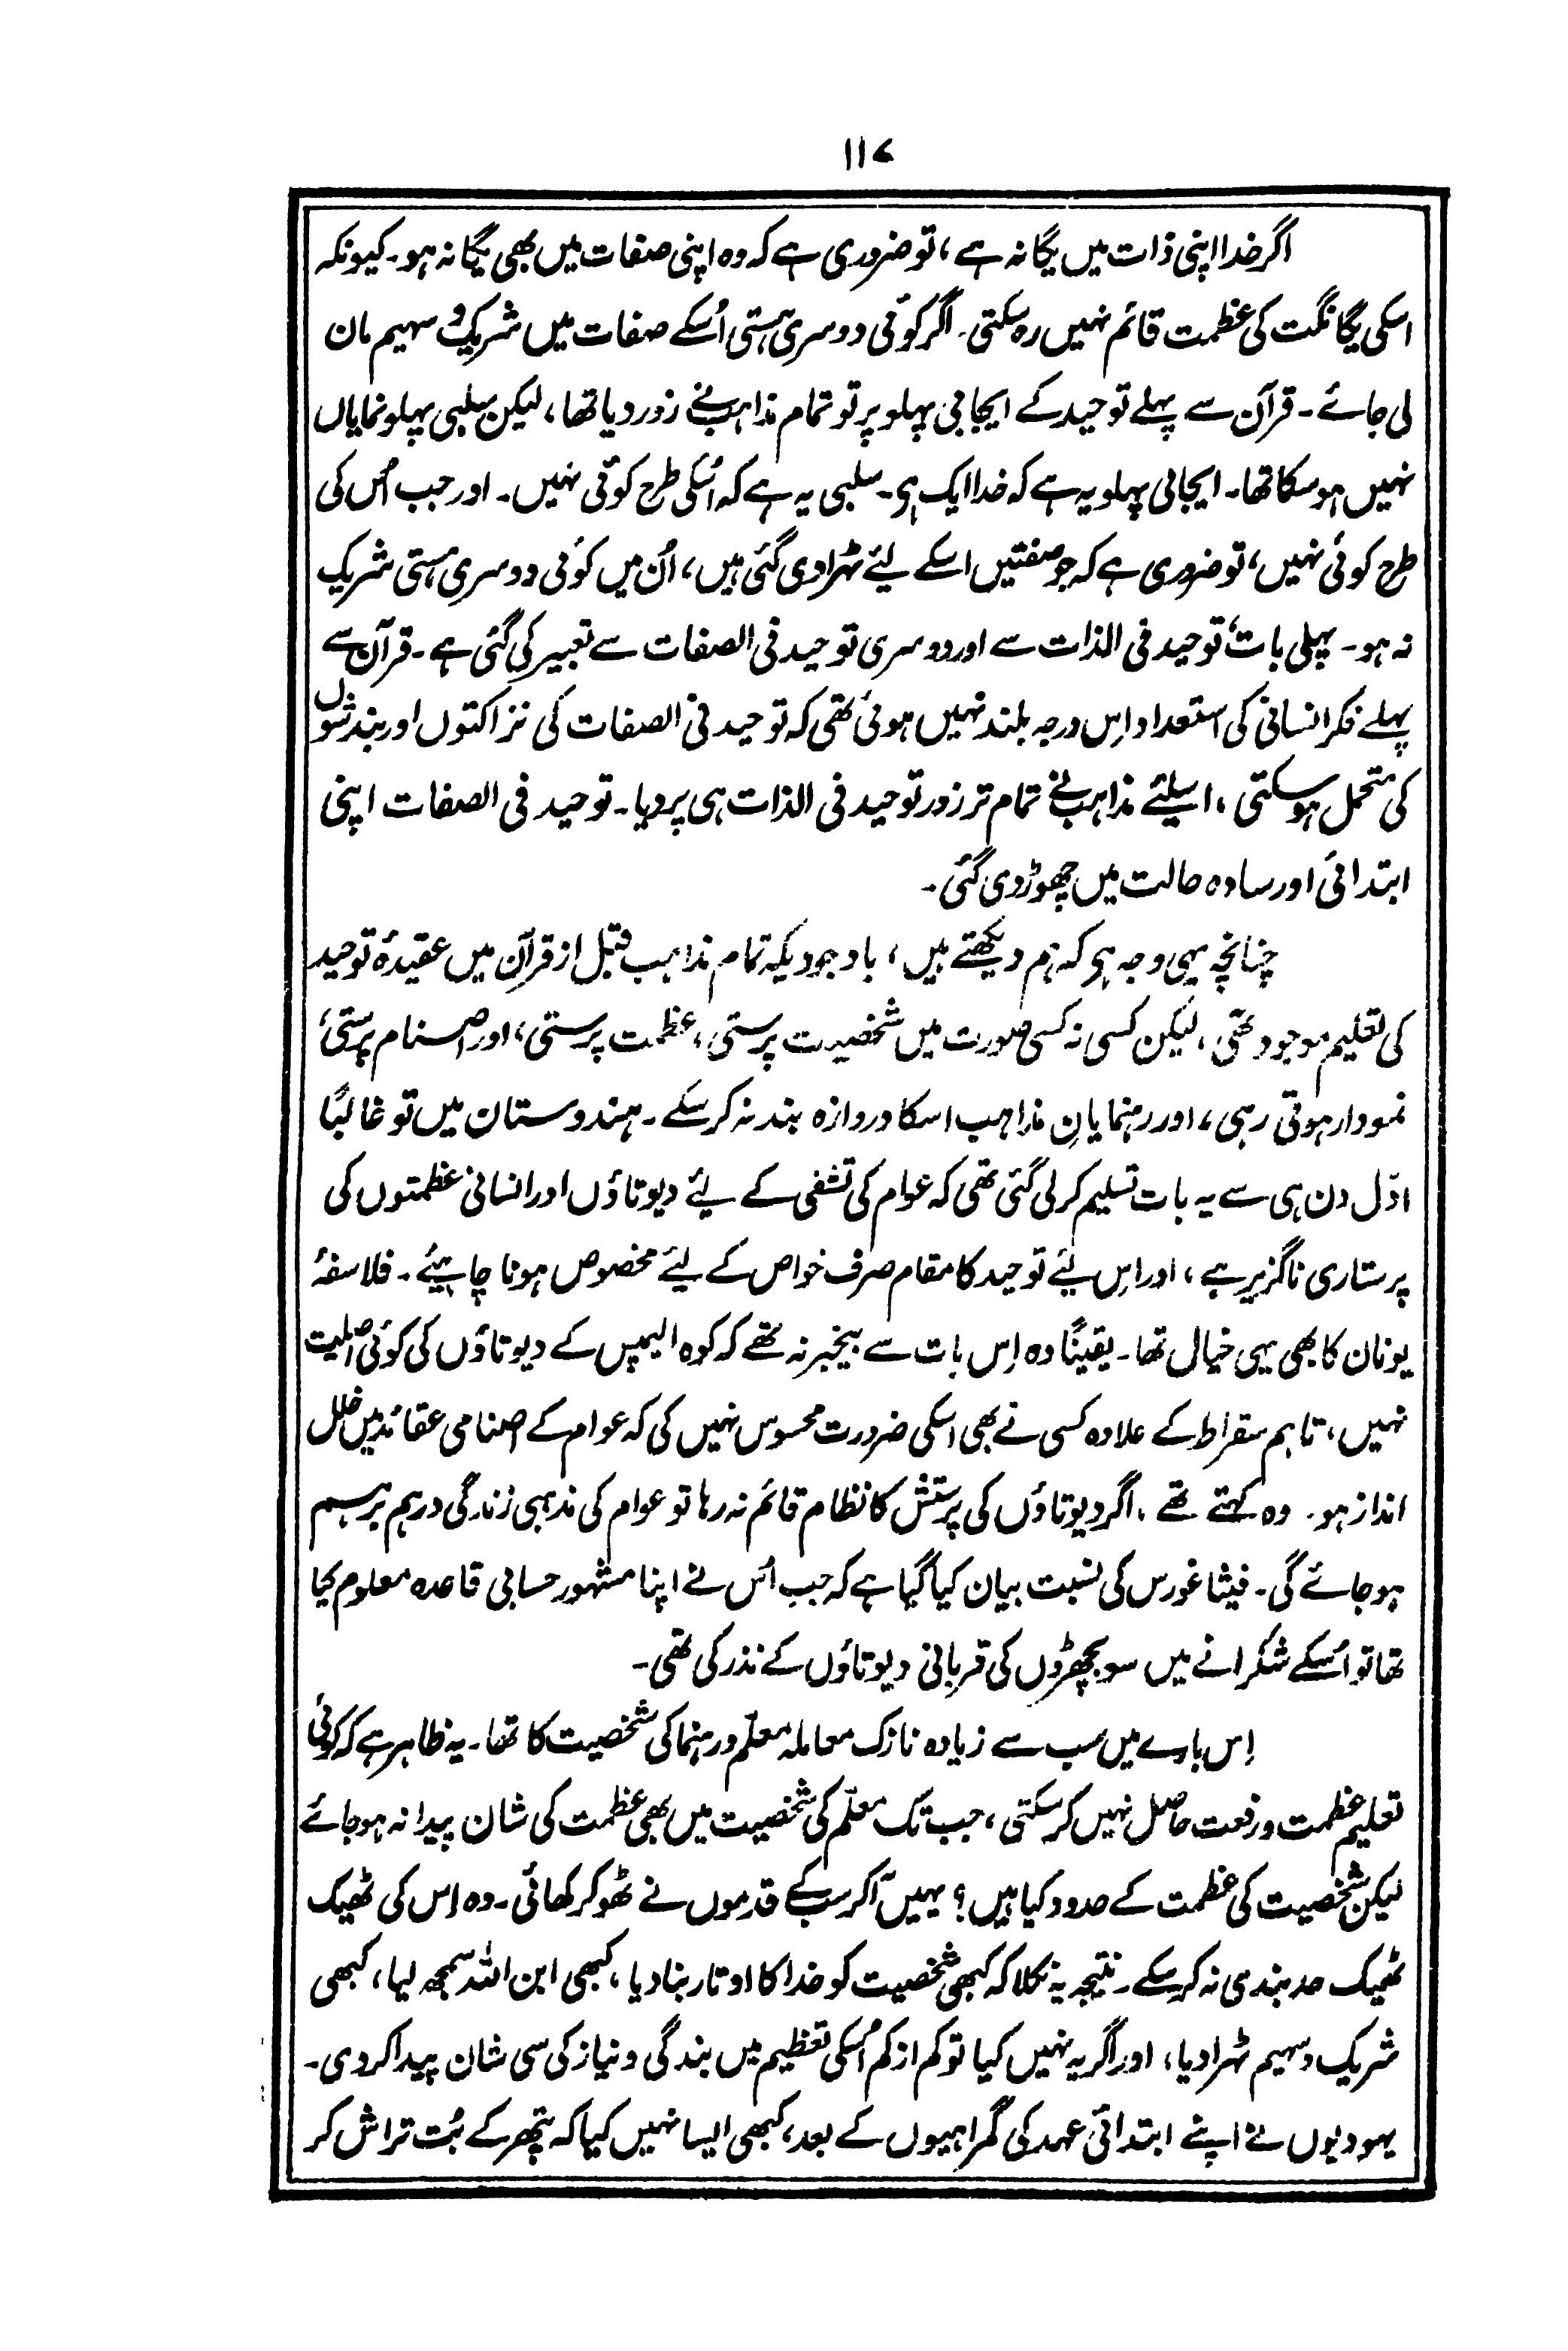 ۱۱۷
اگر خدا اپنی ذات میں یگانہ ہے، تو ضروری ہے کہ وہ اپنی صفات میں بھی یگانہ ہو۔ کیونکہ
اسکی یگانگت کی عظمت قائم نہیں رہ سکتی۔ اگر کوئی دوسری ہستی اُسکے صفات میں شریک و سہیم مان
لی جائے۔ قرآن سے پہلے توحید کے ایجابی پہلو پر تو تمام مذاہب نے زور دیا تھا، لیکن سلبی پہلو نمایاں
نہیں ہو سکا تھا۔ ایجابی پہلو یہ ہے کہ خدا ایک ہی۔ سلبی یہ ہے کہ اُسکی طرح کوئی نہیں۔ اور جب اُس کی
طرح کوئی نہیں، تو ضروری ہے کہ جو صفتیں اسکے لئے ٹہرا دی گئی ہیں، اُن میں کوئی دوسری ہستی شریک
نہ ہو۔ پہلی بات، توحید فی الذات سے اور دوسری توحید فی الصفات سے تعبیر کی گئی ہے۔ قرآن سے
پہلے فکر انسانی کی استعداد اِس درجہ بلند نہیں ہوئی تھی کہ توحید فی الصفات کی نزاکتوں اور بندشوں
کی متحمل ہو سکتی، اسلئے مذاہب نے تمام تر زور توحید فی الذات ہی پر دیا۔ توحید فی الصفات اپنی
ابتدائی اور سادہ حالت میں چھوڑ دی گئی۔
چنانچہ یہی وجہ ہی کہ ہم دیکھتے ہیں، باوجودیکہ تمام مذاہب قبل از قرآن میں عقیدۂ توحید
کی تعلیم موجود تھی، لیکن کسی نہ کسی صورت میں شخصیت پرستی، عظمت پرستی، اور اصنام پرستی،
نمودار ہوتی رہی، اور رہنمایانِ مذاہب اسکا دروازہ بند نہ کر سکے۔ ہندوستان میں تو غالبًا
اوّل دن ہی سے یہ بات تسلیم کر لی گئی تھی کہ عوام کی تشفی کے لئے دیوتاؤں اور انسانی عظمتوں کی
پرستاری ناگزیر ہے، اور اِس لئے توحید کا مقام صرف خواص کے لئے مخصوص ہونا چاہیئے۔ فلاسفۂ
یونان کا بھی یہی خیال تھا۔ یقینًا وہ اِس بات سے بیخبر نہ تھے کہ کوہ الیمپس کے دیوتاؤں کی کوئی اصلیت
نہیں، تاہم سقراط کے علاوہ کسی نے بھی اسکی ضرورت محسوس نہیں کی کہ عوام کے اصنامی عقائد میں خلل
انداز ہو۔ وہ کہتے تھے، اگر دیوتاؤں کی پرستش کا نظام قائم نہ رہا تو عوام کی مذہبی زندگی درہم برہم
ہو جائے گی۔ فیثاغورس کی نسبت بیان کیا گیا ہے کہ جب اُس نے اپنا مشہور حسابی قاعدہ معلوم کیا
تھا تو اُسکے شکرانے میں سو بچھڑوں کی قربانی دیوتاؤں کے نذر کی تھی۔
اِس بارے میں سب سے زیادہ نازک معاملہ معلّم و رہنما کی شخصیت کا تھا۔ یہ ظاہر ہے کہ کوئی
تعلیم عظمت و رفعت حاصل نہیں کر سکتی، جب تک معلّم کی شخصیت میں بھی عظمت کی شان پیدا نہ ہو جائے
لیکن شخصیت کی عظمت کے حدود کیا ہیں؟ یہیں آ کر سب کے قدموں نے ٹھوکر کھائی۔ وہ اس کی ٹھیک
ٹھیک حد بندی نہ کر سکے۔ نتیجہ یہ نکلا کہ کبھی شخصیت کو خدا کا اوتار بنا دیا، کبھی ابن اللہ سمجھ لیا، کبھی
شریک و سہیم ٹہرا دیا، اور اگر یہ نہیں کیا تو کم از کم اُسکی تعظیم میں بندگی و نیاز کی سی شان پیدا کر دی۔
یہودیوں نے اپنے ابتدائی عہد کی گمراہیوں کے بعد، کبھی ایسا نہیں کیا کہ پتھر کے بُت تراش کر